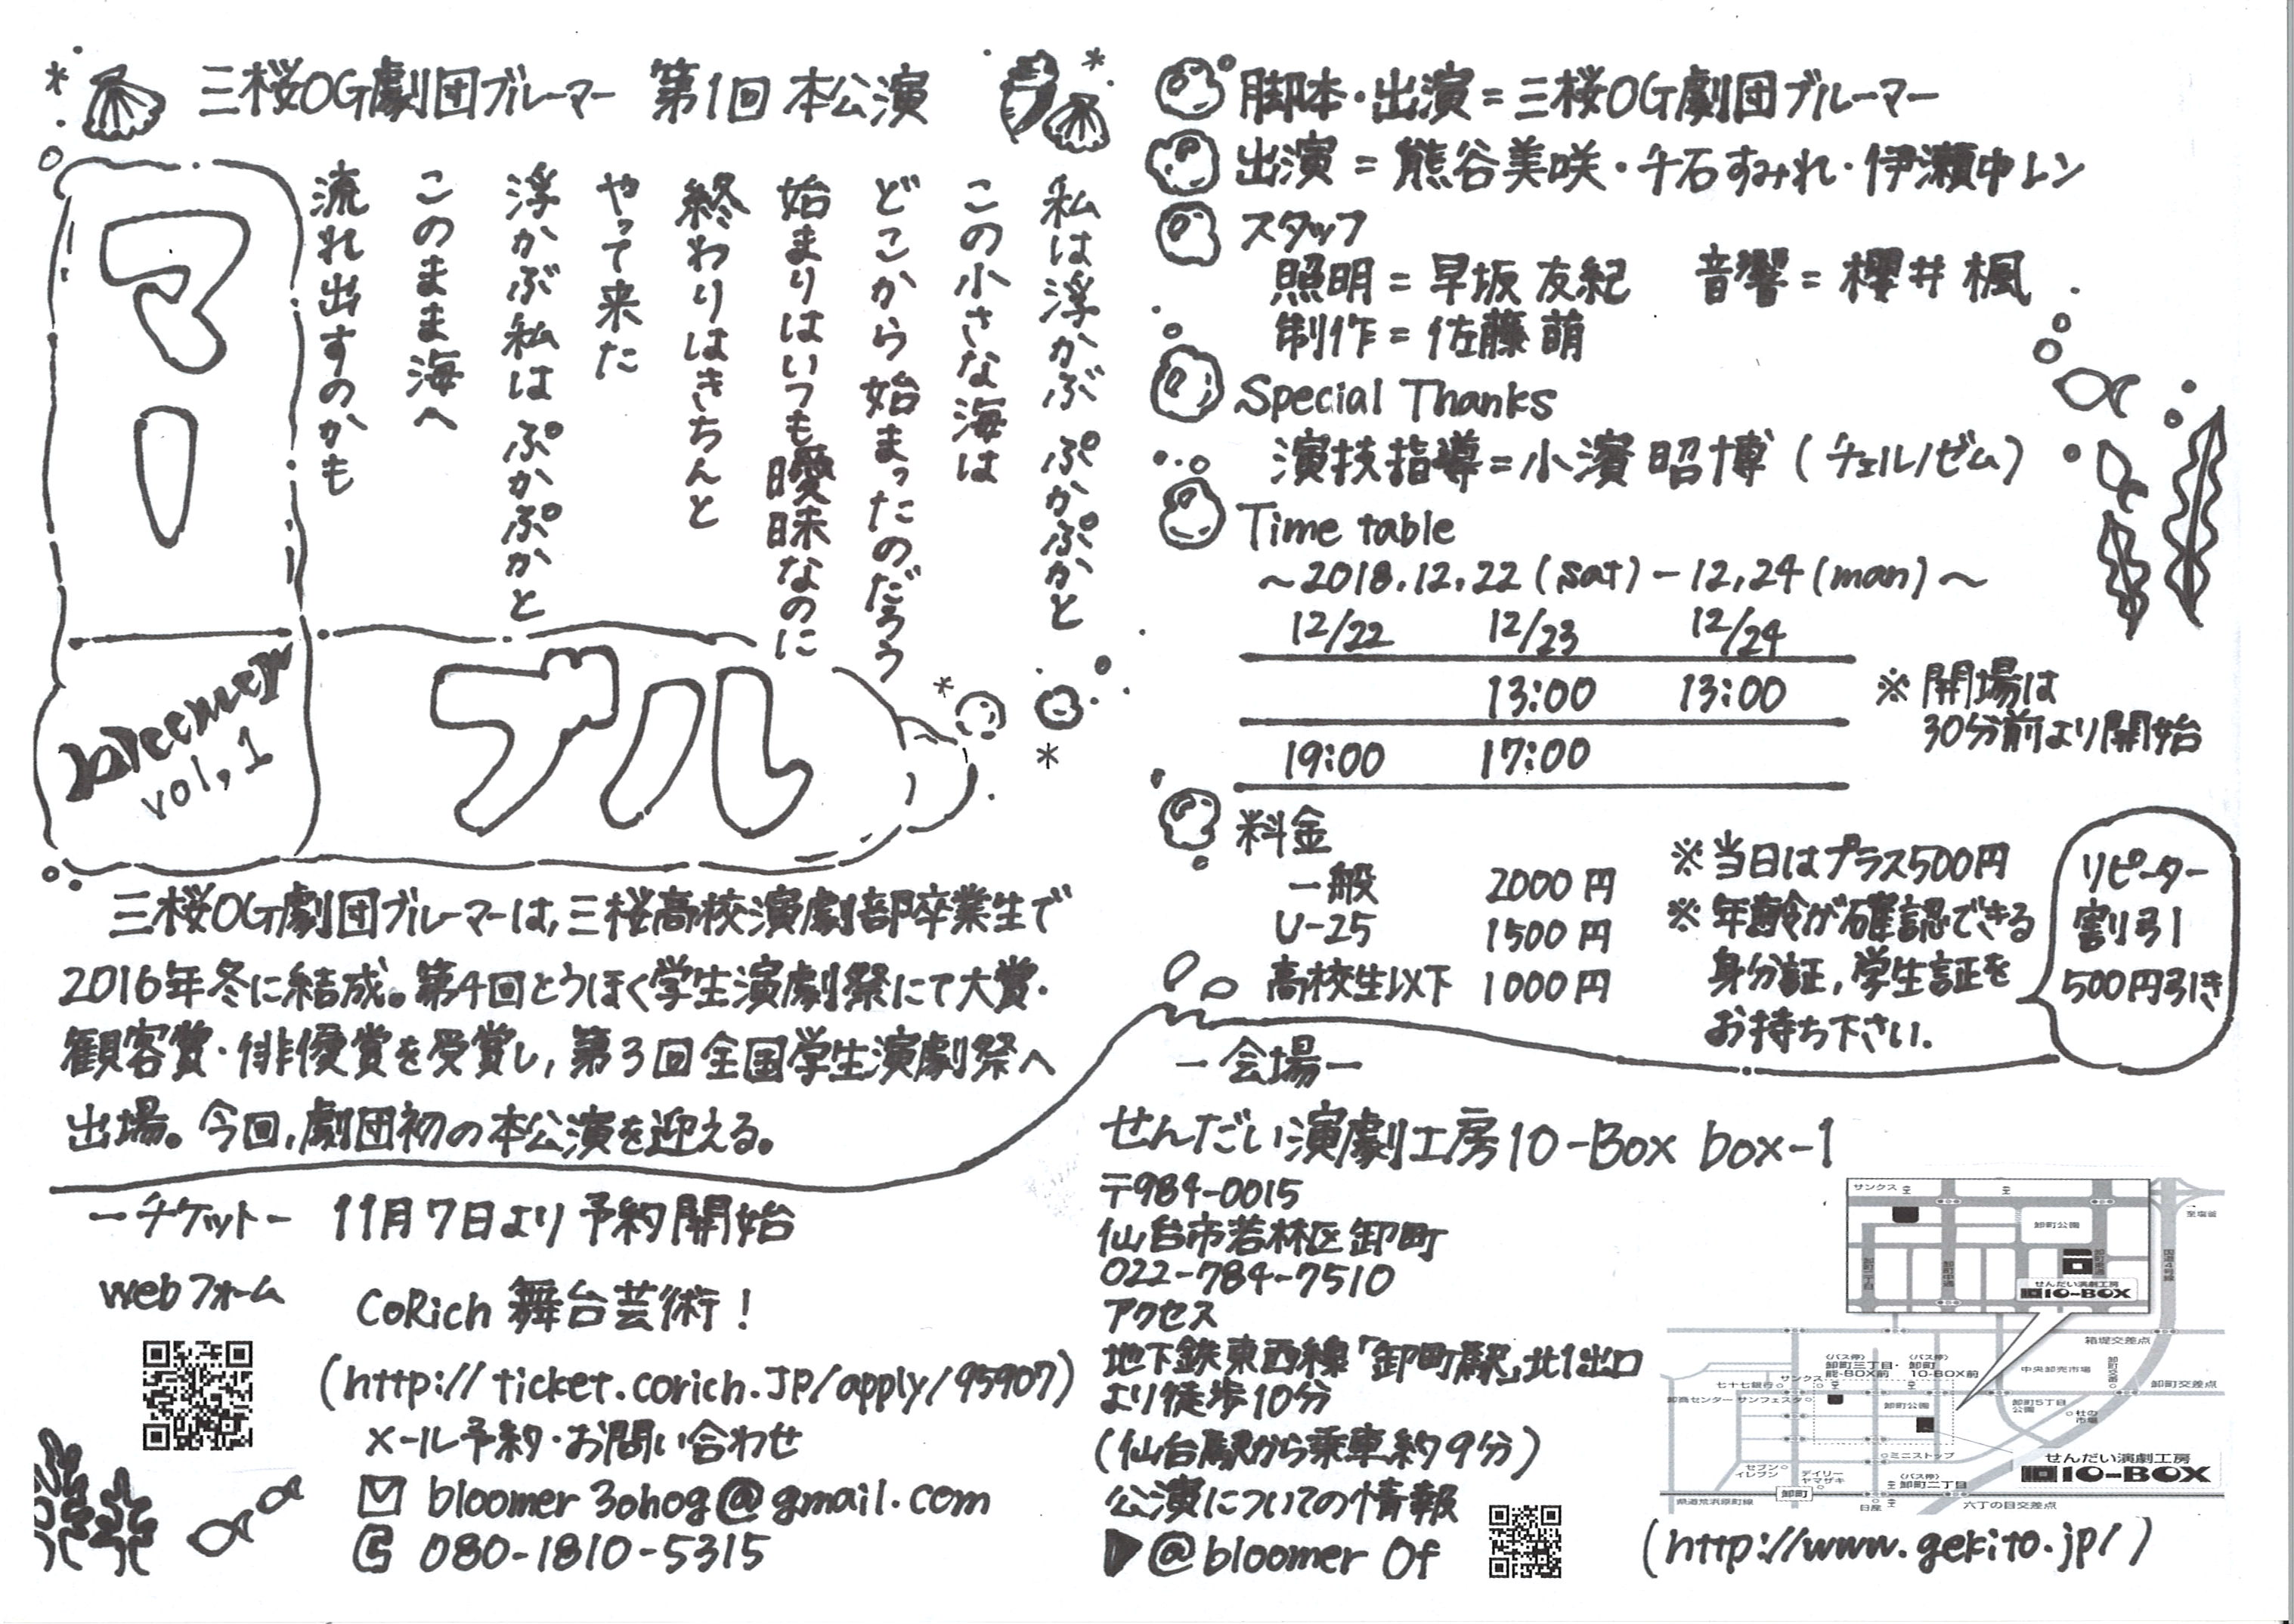 三桜OG劇団ブルーマー 第1回 本公演
私は浮かぶ ぷかぷかと
この小さな海は
どこから始まったのだろう
始まりはいつも曖昧なのに
終わりはきちんと
やって来た
浮かぶ私は ぷかぷかと
このまま海へ
流れ出すのかも
マーブル
bloomer
vol,1
三桜OG劇団ブルーマーは,三桜高校演劇部卒業生で
2016年冬に結成。第4回とうほく学生演劇祭にて大賞・
観客賞・俳優賞を受賞し,第3回全国学生演劇祭へ
出場。今回,劇団初の本公演を迎える。
ーチケットー 11月7日より予約開始
webフォーム
CoRich 舞台芸術!
(http://ticket.corich.jp/apply/95907)
メール予約・お問い合わせ
bloomer3ohog@gmail.com
080-1810-5315
脚本・出演=三桜OG劇団ブルーマー
出演=熊谷美咲・千石すみれ・伊瀬中レン
スタッフ
照明=早坂友紀 音響=櫻井楓
制作=佐藤萌
Special Thanks
演技指導=小濱昭博(チェルノゼム)
Time table
~2018.12.22(sat)-12,24(man)~
12/22 12/23 12/24
13:00 13:00
19:00 17:00
※開場は
30分前より開始
料金
一般 2000円
U-25 1500円
高校生以下 1000円
※当日はプラス500円
※年齢が確認できる
身分証,学生証を
お持ち下さい.
リピーター
割り引
500円引き
ー会場ー
せんだい演劇工房10-Box box-1
〒984-0015
仙台市若林区卸町
022-784-7510
アクセス
地下鉄東西線「卸町駅」北1出口
より徒歩10分
(仙台駅から乗車約9分)
公演についての情報
▶@bloomer Of
サンクス
卸町公園
せんだい演劇工房
10-BOX
至塩釜
国道4号線
箱堤交差点
〈バス停〉
卸町三丁目・
能-BOX前
〈バス停〉
卸町
10-BOX前
中央卸売市場
卸町交差点
七十七銀行
サンクス
卸商センター サンフェスタ
卸町公園
卸町5丁目
公園
杜の
市場
ミニストップ
セブン
イレブン
デイリー
ヤマザキ
〈バス停〉
卸町二丁目
せんだい演劇工房
10-BOX
県道荒浜原町線
卸町
日産
六丁の目交差点
(http://www.gekito.jp/)